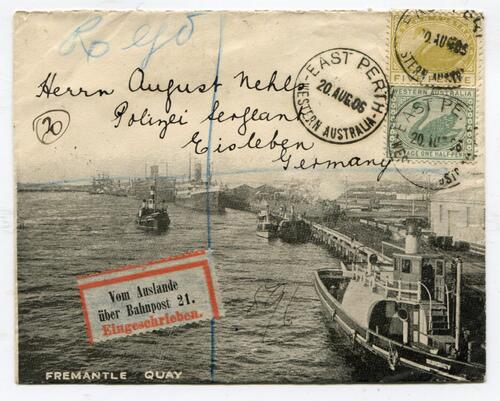 Regd
Herrn August Nehls
Polizei Sergeant
Eisleben
Germany
20
EAST PERTH
20 AUG 06
WESTERN AUSTRALIA
FIVE PENCE
20 AUG 06
WESTERN AUSTRALIA
EAST PE
POSTAGE ONE HALF-PENNY
Vom Auslande
über Bahnpost 21.
Eingeschrieben.
FREMANTLE QUAY